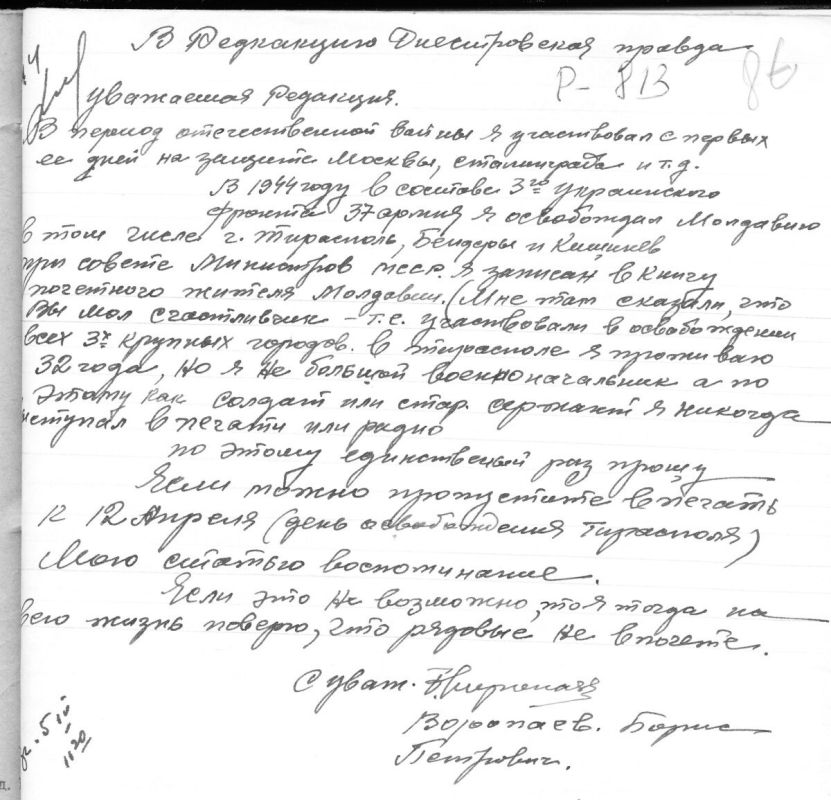 В Редкакцию Днестровская правда
Р-813
86
Уважаемая Редакция.
В период отечественной войны я участвовал с первых
ее дней на защите Москвы, сталинграда и т.д.
В 1944 году в составе 3го Украинского
фронта 37 армия я освобождал Молдавию
в том числе г. Тирасполь, Бендеры и Кишинев
при совете Министров мсср. я записан в книгу
почетного жителя Молдавии. (Мне там сказали, что
Вы мол счастливчик - т.е. участвовали в освобождении
всех 3х крупных городов. в тирасполе я проживаю
32 года, но я не большой военноначальник а по
этому как солдат или стар. сержант я никогда
ступал в печати или радио
по этому единственый раз прошу
Если можно пропустите в печать
к 12 Апреля (день освобождения Тирасполя)
Мою статью воспоминание.
Если это не возможно, то я тогда на
всю жизнь поверю, что рядовые не в почете.
С уваж.
Воропаев. Борис
Петрович.